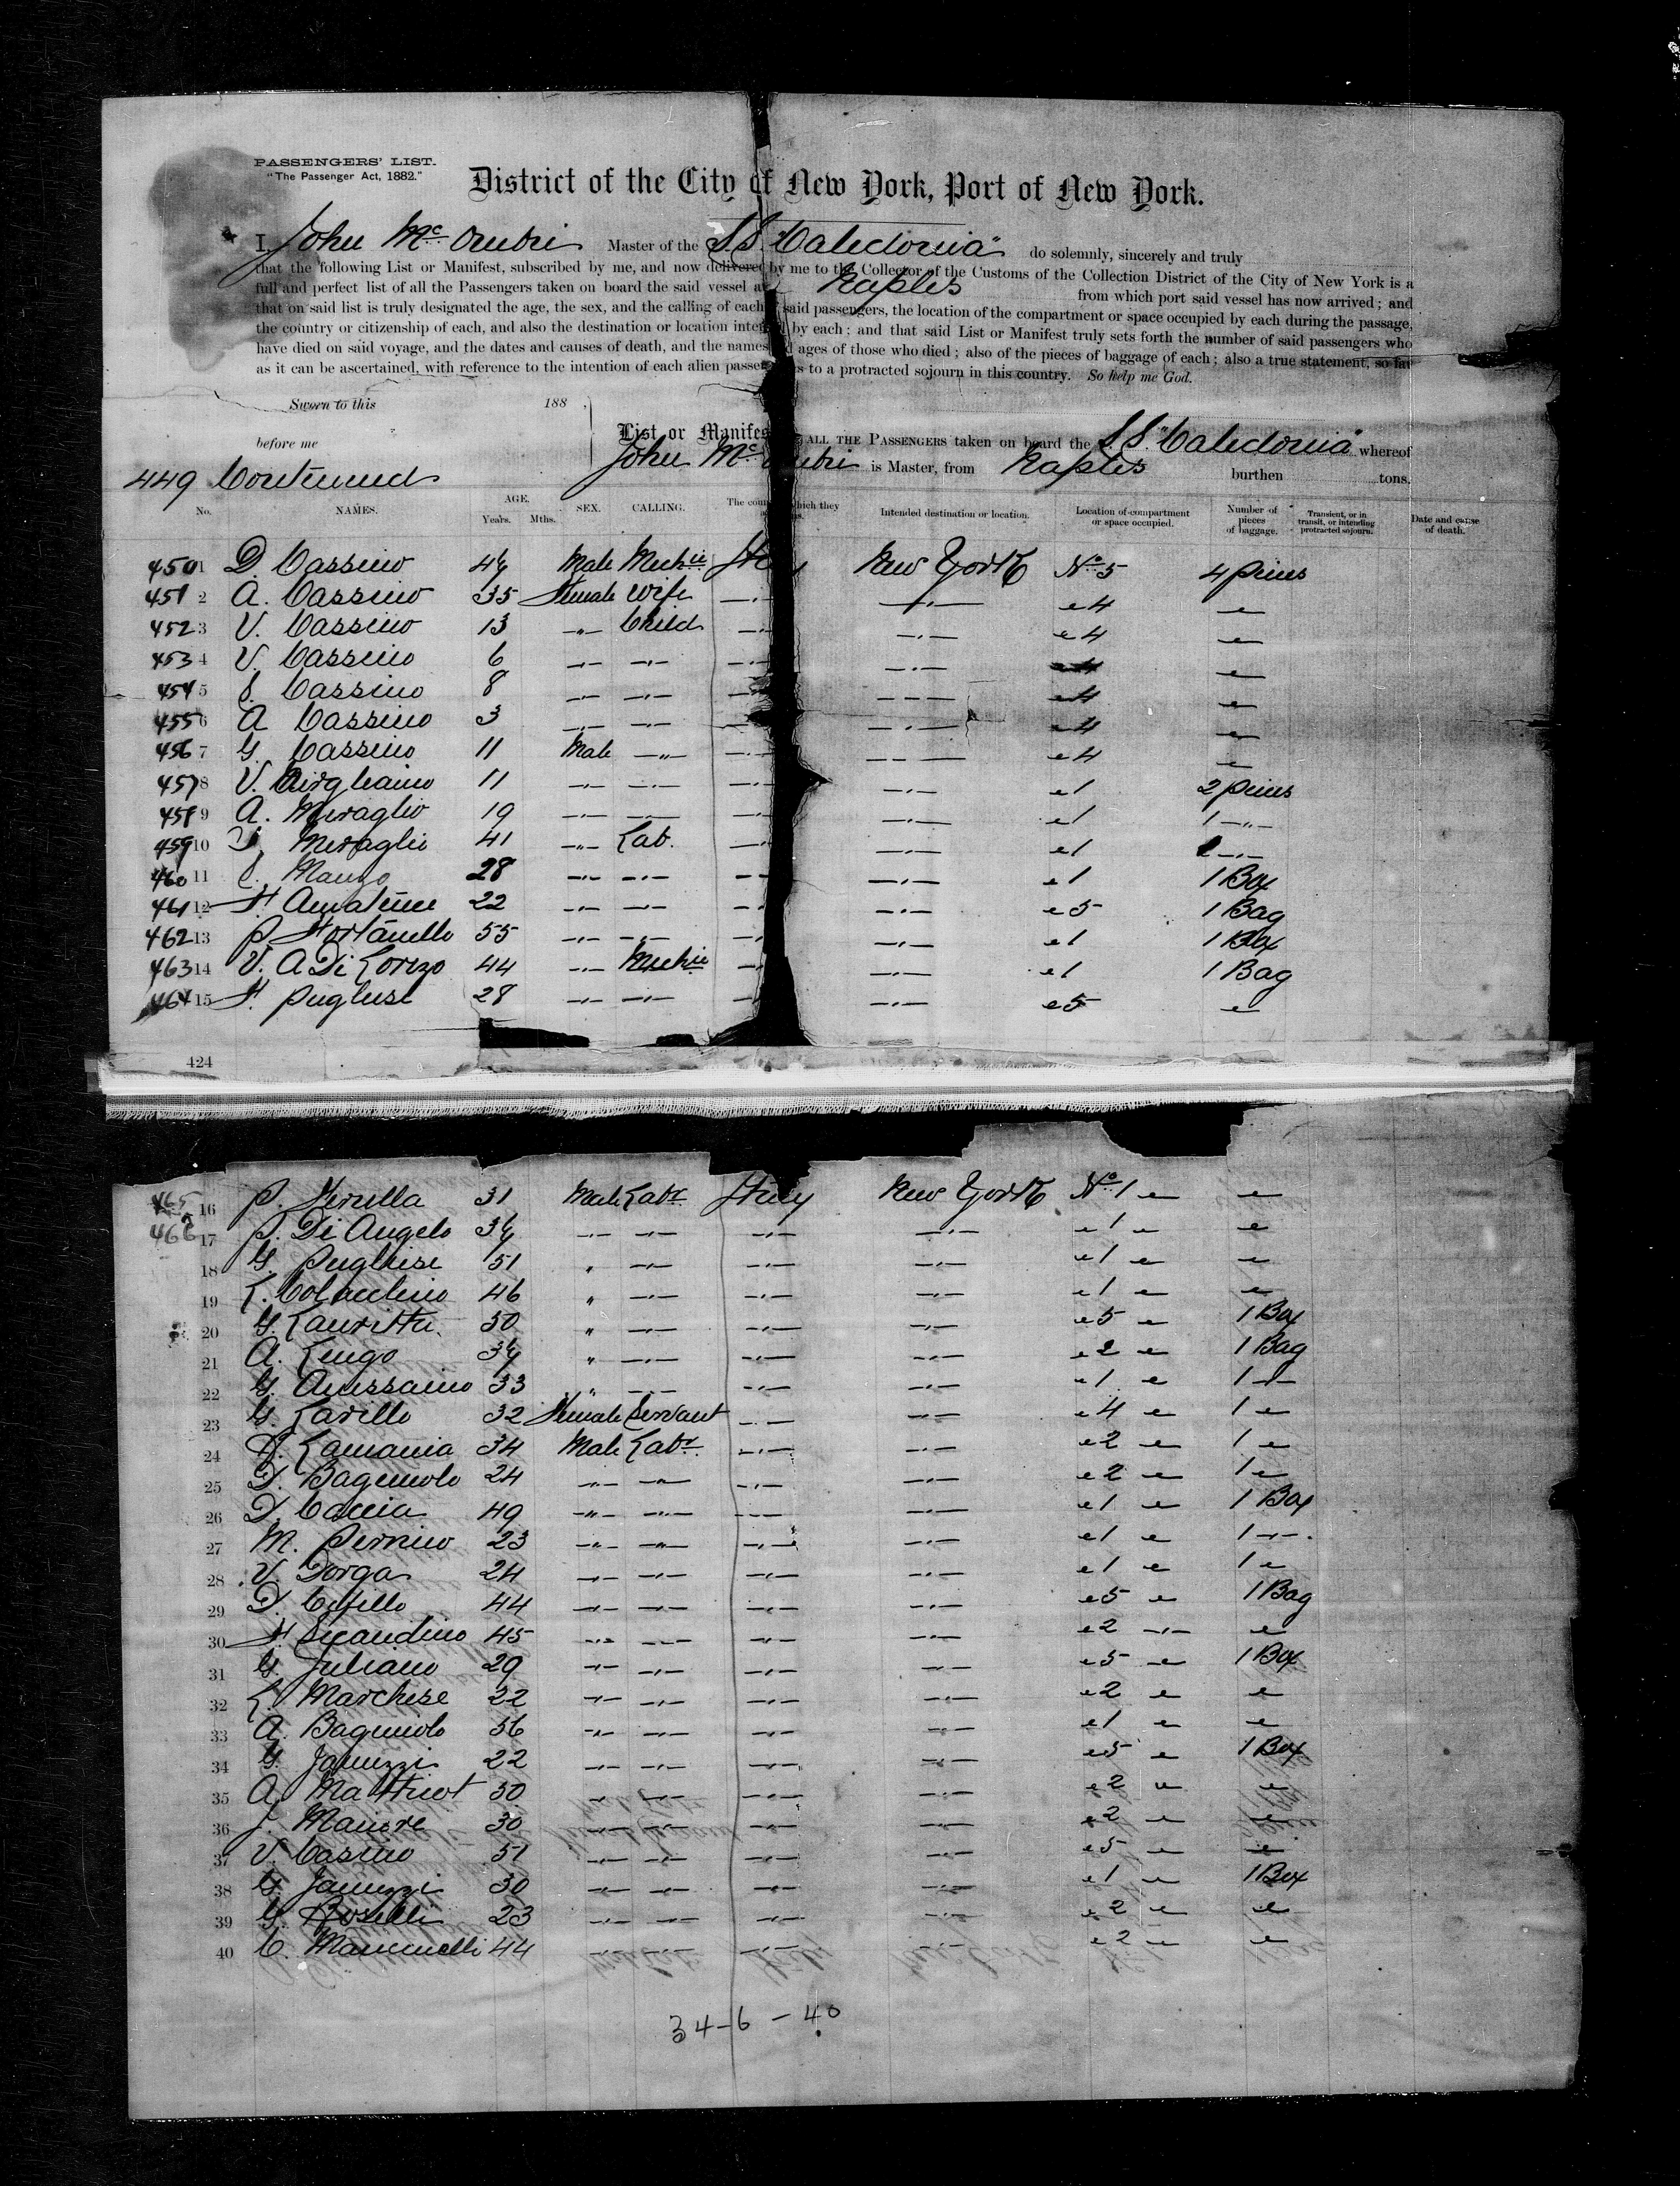 PASSENGERS' LIST.
"The Passenger Act, 1882."
District of the City of New York, Port of New York.
I, John Mc Master of the S.S. "Caledonia" do solemnly, sincerely and truly
that the following List or Manifest, subscribed by me, and now delivered by me to the Collector of the Customs of the Collection District of the City of New York is a
full and perfect list of all the Passengers taken on board the said vessel at Naples from which port said vessel has now arrived; and
that on said list is truly designated the age, the sex, and the calling of each of said passengers, the location of the compartment or space occupied by each during the passage,
the country or citizenship of each, and also the destination or location inte by each; and that said List or Manifest truly sets forth the number of said passengers who
have died on said voyage, and the dates and causes of death, and the names ages of those who died; also of the pieces of baggage of each; also a true statement, so far
as it can be ascertained, with reference to the intention of each alien passen s to a protracted sojourn in this country. So help me God.
Sworn to this 188 .
before me
List or Manifes ALL THE PASSENGERS taken on board the S.S. "Caledonia" whereof
John Mc is Master, from Naples burthen tons.
449 Continued
No. NAMES. AGE. Years. Mths. SEX. CALLING. The coun which they Intended destination or location. Location of compartment or space occupied. Number of pieces of baggage. Transient, or in transit, or intending protracted sojourn. Date and cause of death.
450 1 D. Cassino Male New York No 5 4 pieces
451 2 A. Cassino 35 Female Wife —"— —"— " 4 "
452 3 V. Cassino 13 —"— Child —"— —"— " 4 "
453 4 V. Cassino 6 —"— —"— —"— —"— " 4 "
454 5 Cassino 8 —"— —"— —"— —"— " 4 "
455 6 A Cassino 3 —"— —"— —"— —"— " 4 "
456 7 G. Cassino 11 Male —"— —"— —"— " 4 "
457 8 V. 11 —"— —"— —"— —"— " 1 2 pieces
458 9 A. Miraglio 19 —"— —"— —"— —"— " 1 1 —"—
459 10 Miraglio 41 —"— Lab. —"— —"— " 1 —"—
460 11 Manzo 28 —"— —"— —"— —"— " 1 1 Box
461 12 F. 22 —"— —"— —"— —"— " 5 1 Bag
462 13 P. 55 —"— —"— —"— —"— " 1 1 Box
463 14 V. A Di Lorizo 44 —"— —"— —"— " 1 1 Bag
464 15 F. Pugliese 28 —"— —"— —"— —"— " 5 "
424
465 16 P. 31 Male Labr Italy New York No 1 " "
466 17 P. Di Angelo —"— —"— —"— —"— " 1 " "
18 G. Pugliese 51 " —"— —"— —"— " 1 " "
19 L. 46 " —"— —"— —"— " 1 " "
20 G. Lauritta 50 " —"— —"— —"— " 5 " 1 Box
21 A. Longo " —"— —"— —"— " 2 " 1 Bag
22 G. 33 " —"— —"— —"— " 1 " 1 —"—
23 G. Larillo 32 Female Servant —"— —"— " 4 " 1 "
24 Lamania 34 Male Labr. —"— —"— " 2 " 1 "
25 D. Bagnuolo 24 —"— —"— —"— —"— " 2 " 1 "
26 D. Caccia 49 —"— —"— —"— —"— " 1 " 1 Box
27 M. Pernico 23 —"— —"— —"— —"— " 1 " 1 —"—
28 V. Dorga 24 —"— —"— —"— —"— " 1 " 1 "
29 D. 44 —"— —"— —"— —"— " 5 " 1 Bag
30 F. 45 —"— —"— —"— —"— " 2 —"— "
31 G. Juliano 29 —"— —"— —"— —"— " 5 " 1 Box
32 L. Marchese 22 —"— —"— —"— —"— " 2 " "
33 A. Bagnuolo 56 —"— —"— —"— —"— " 1 " "
34 G. Januzzi 22 —"— —"— —"— —"— " 5 " 1 Box
35 A. 50 —"— —"— —"— —"— " 2 " "
36 J. 30 —"— —"— —"— —"— " 2 " "
37 V. Casino 51 —"— —"— —"— —"— " 5 " "
38 G. Januzzi 30 —"— —"— —"— —"— " 1 " 1 Box
39 G. Roselli 23 —"— —"— —"— —"— " 2 " "
40 C. Mancinelli 44 —"— —"— —"— —"— " 2 " "
34-6-40